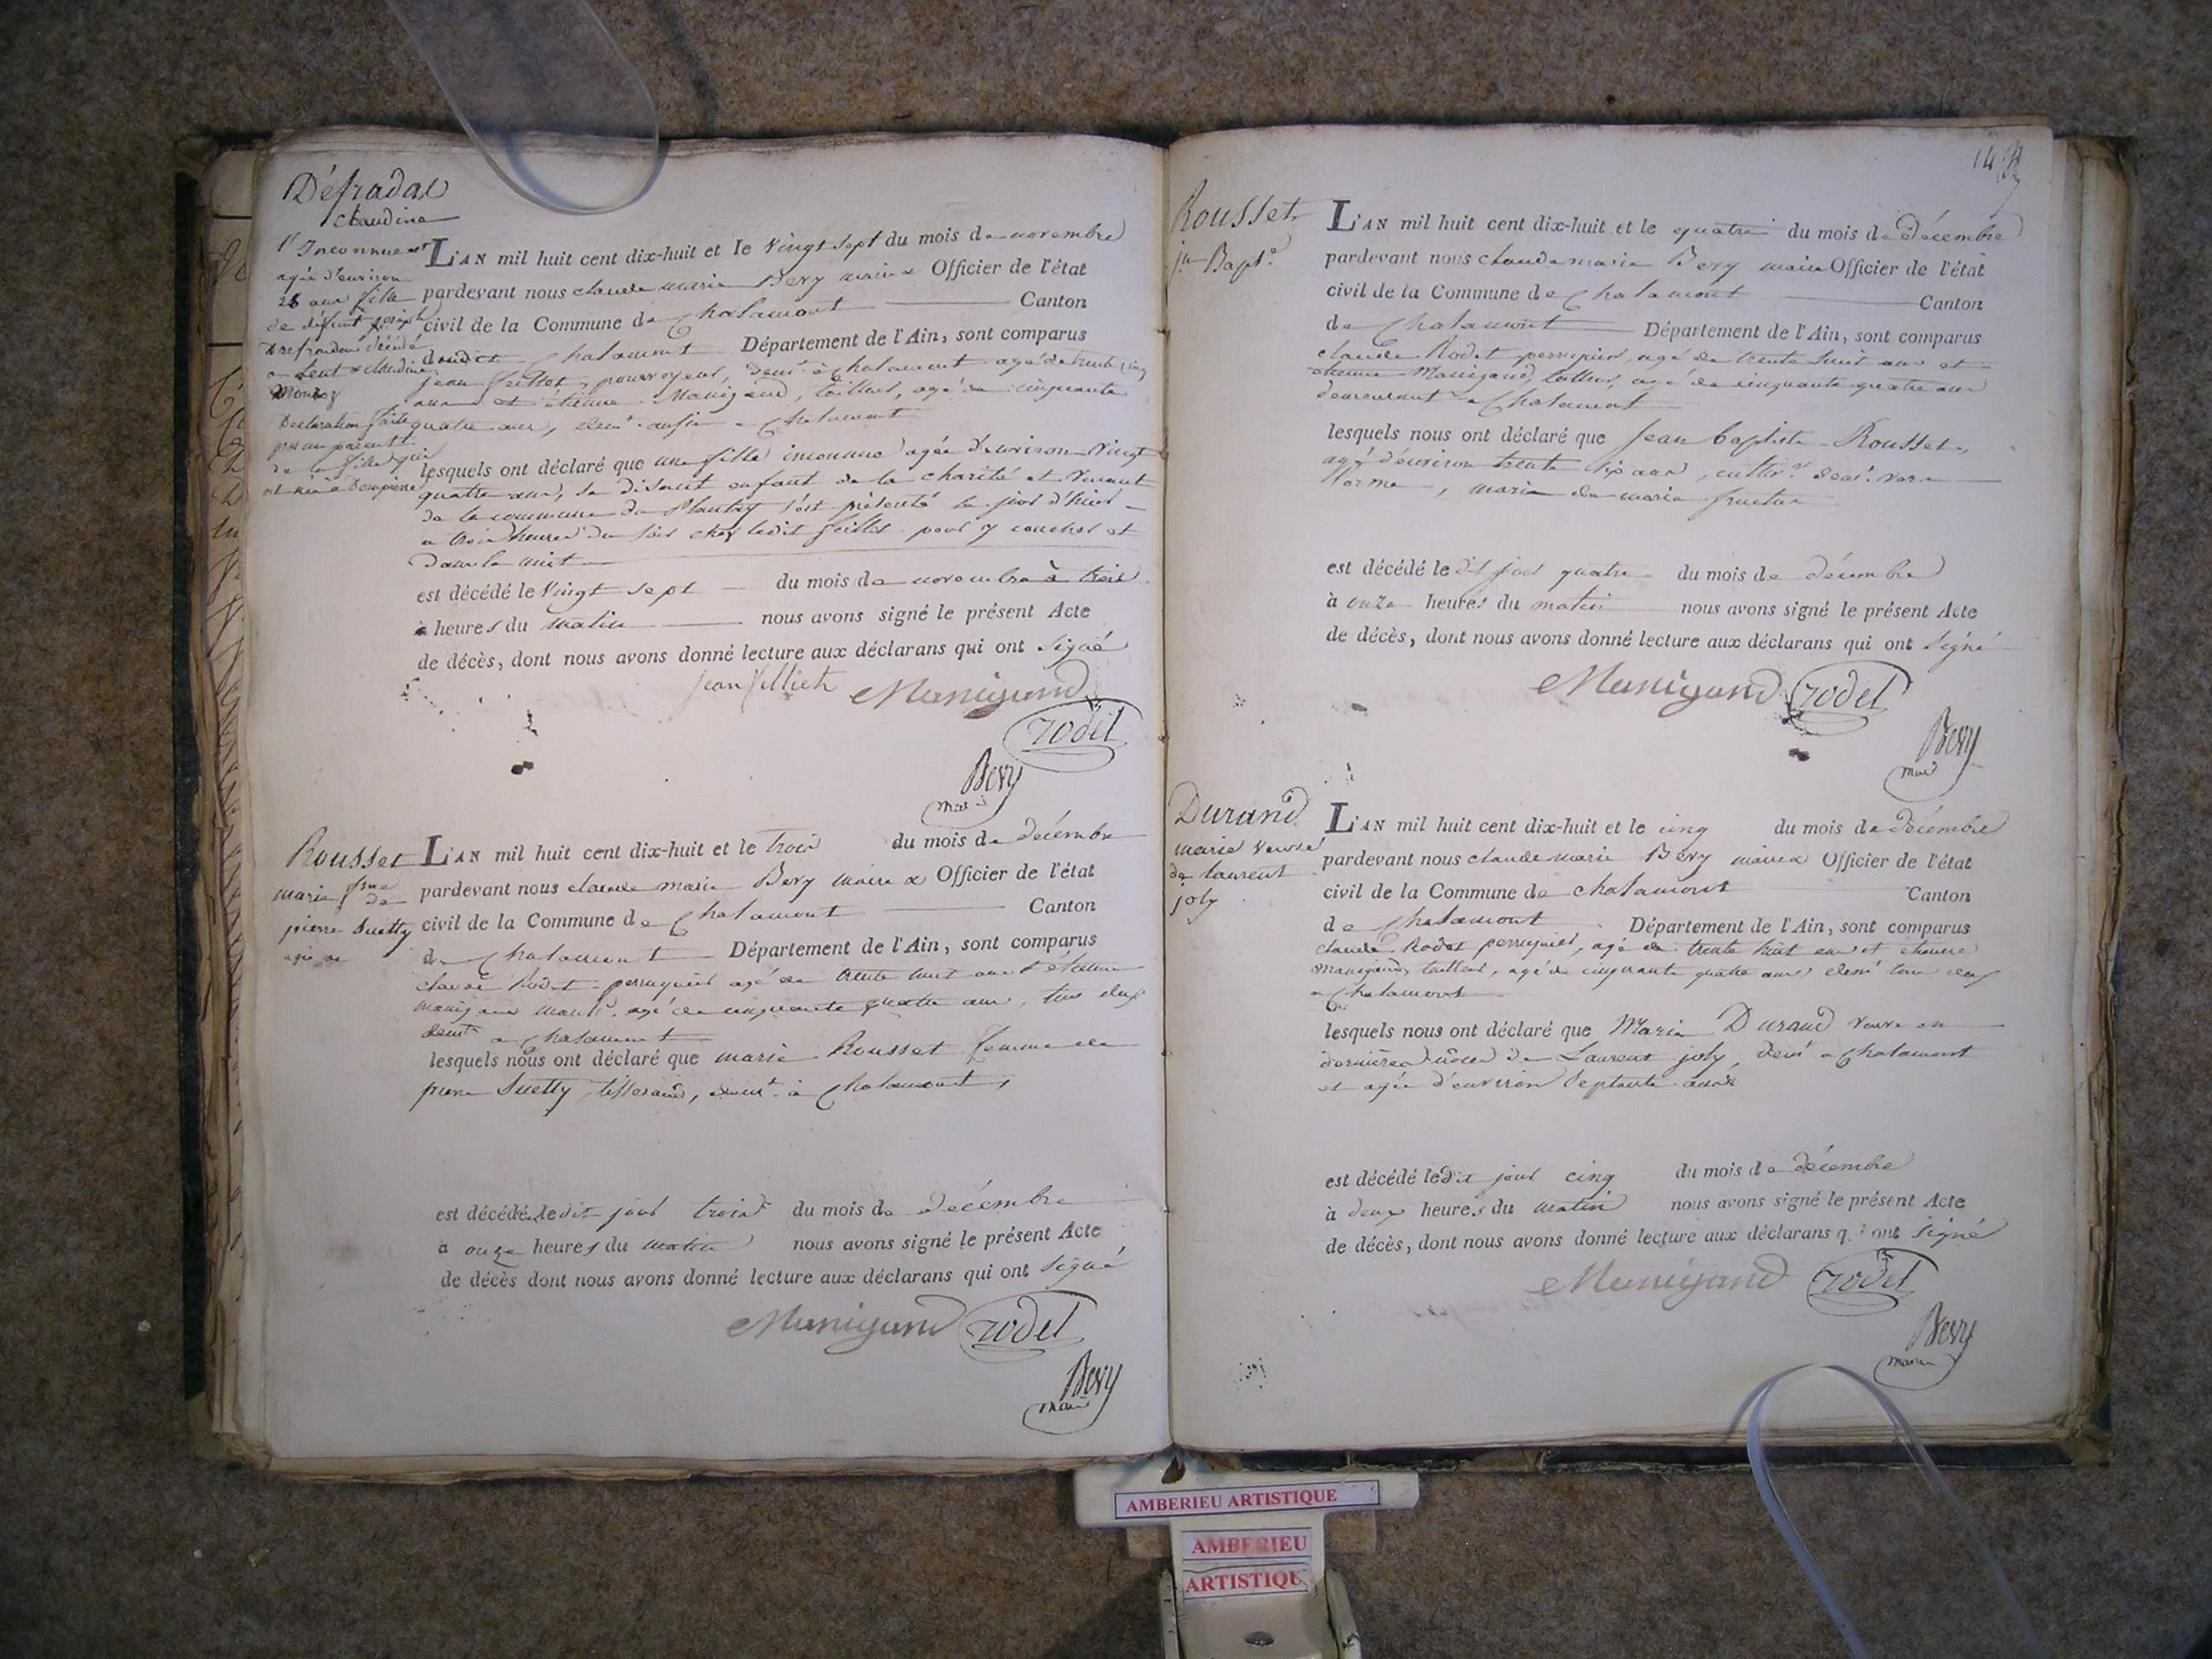 Défradas
Claudine
1 Inconnue
agée d'environ
28 ans fille
de défunt joseph
décédé
a Lent & Claudine
Monroz
Declaration faite
par un parent
de la fille qui
est née a Dompierre
L'AN mil huit cent dix-huit et le Vingt Sept du mois de novembre
pardevant nous claude marie Bevy maire & Officier de l'état
civil de la Commune de Chalamont Canton
dudit Chalamont Département de l'Ain, sont comparus
jean pourvoyeur, demt à Chalamont agé de trente cinq
ans et étienne Manigand, tailleur, agé de cinquante
quatre ans, demt aussi a Chalamont
lesquels ont déclaré que une fille inconnue agée d'environ Vingt
quatre ans, se disant enfant de la charité et Venant
de la commune du Plantay s'est présenté le jour d'hier
a trois heures du soir chez ledit pour y coucher et
dans la nuit
est décédé le Vingt sept du mois de novembre à trois
heures du matin nous avons signé le présent Acte
de décès, dont nous avons donné lecture aux déclarans qui ont signé
jean Manigand
rodet
Bevy
Rousset
marie fme de
pierre Suetty
agée de
L'AN mil huit cent dix-huit et le trois du mois de décembre
pardevant nous claude marie Bevy maire & Officier de l'état
civil de la Commune de Chalamont Canton
de Chalamont Département de l'Ain, sont comparus
claude Rodet perruquier agé de trente huit ans & étienne
manigand agé de cinquante quatre ans, tous deux
demt a Chalamont
lesquels nous ont déclaré que marie Rousset femme de
pierre Suetty, tisserand, demt à Chalamont,
est décédée ledit jour trois du mois de décembre
a onze heures du matin nous avons signé le présent Acte
de décès dont nous avons donné lecture aux déclarans qui ont signé
Manigand rodet
Bevy
maire
Rousset
jn Bapte
L'AN mil huit cent dix-huit et le quatre du mois de décembre
pardevant nous claude marie Bevy maire Officier de l'état
civil de la Commune de Chalamont Canton
de Chalamont Département de l'Ain, sont comparus
claude Rodet perruquier, agé de trente huit ans et
étienne Manigand, tailleur, agé de cinquante quatre ans
demeurant a Chalamont
lesquels nous ont déclaré que jean baptiste Rousset,
agé d'environ trente six ans, cultivr demt
, marie
est décédé le dit jour quatre du mois de décembre
à onze heures du matin nous avons signé le présent Acte
de décès, dont nous avons donné lecture aux déclarans qui ont signé
Manigand rodet
Bevy
Durand
marie veuve
de laurent
joly
L'AN mil huit cent dix-huit et le cinq du mois de décembre
pardevant nous claude marie Bevy maire & Officier de l'état
civil de la Commune de chalamont Canton
de Chalamont Département de l'Ain, sont comparus
claude Rodet perruquier, agé de trente huit ans et étienne
manigand, tailleur, agé de cinquante quatre ans demt tous deux
a Chalamont
lesquels nous ont déclaré que Marie Durand veuve en
dernières nôces de Laurent joly, demt a Chalamont
et agée d'environ septante ans
est décédé ledit jour cinq du mois de décembre
à deux heures du matin nous avons signé le présent Acte
de décès, dont nous avons donné lecture aux déclarans qui ont signé
Manigand rodet
Bevy
maire
AMBERIEU ARTISTIQUE
AMBERIEU
ARTISTIQUE